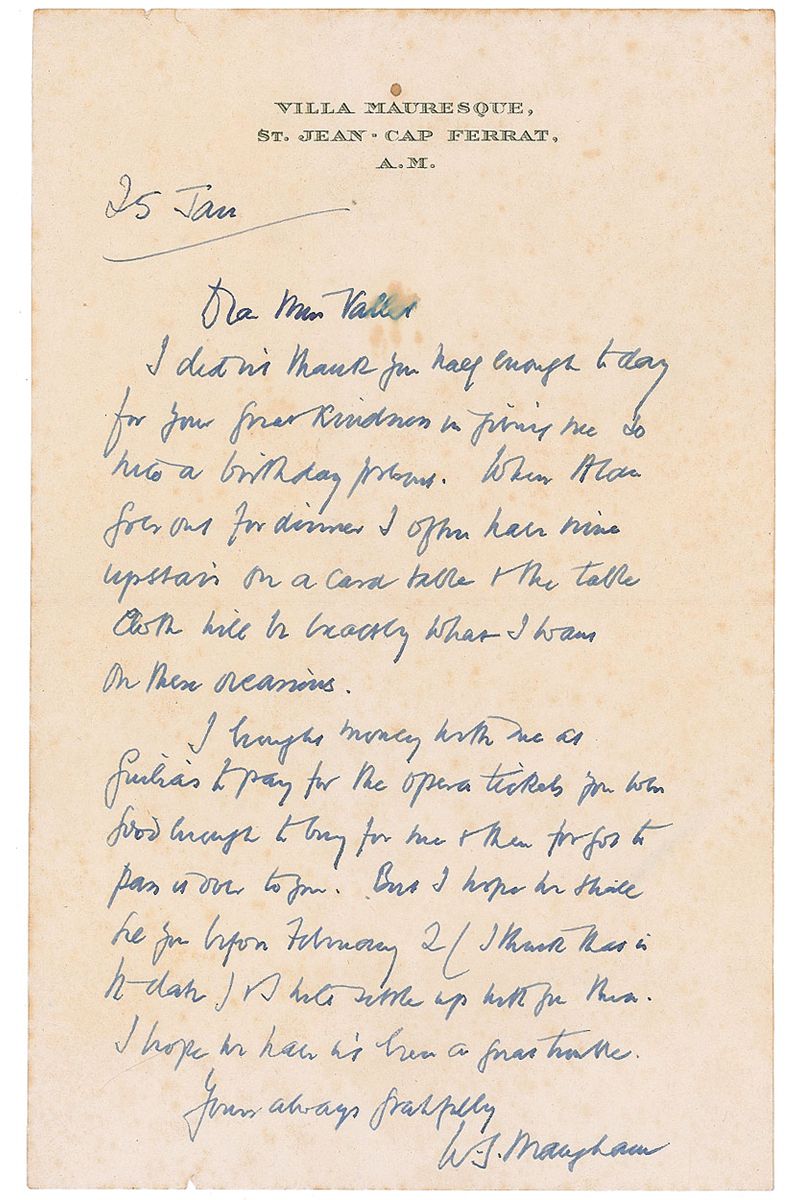 VILLA MAURESQUE,
ST. JEAN - CAP FERRAT,
A.M.
25 Jan
Dear Miss
I didn't thank you half enough to day
for your great kindness in giving me so
nice a birthday present. When Alan
goes out for dinner I often have mine
upstairs on a card table & the table
cloth will be exactly what I want
on these occasions.
I brought money with me at
to pay for the opera tickets you were
good enough to buy for me & then forgot to
pass it over to you. But I hope we shall
see you before February 2 (I think that is
the date) & I will settle up with you then.
I hope we have not been a great trouble.
Yours always gratefully
W.S. Maugham